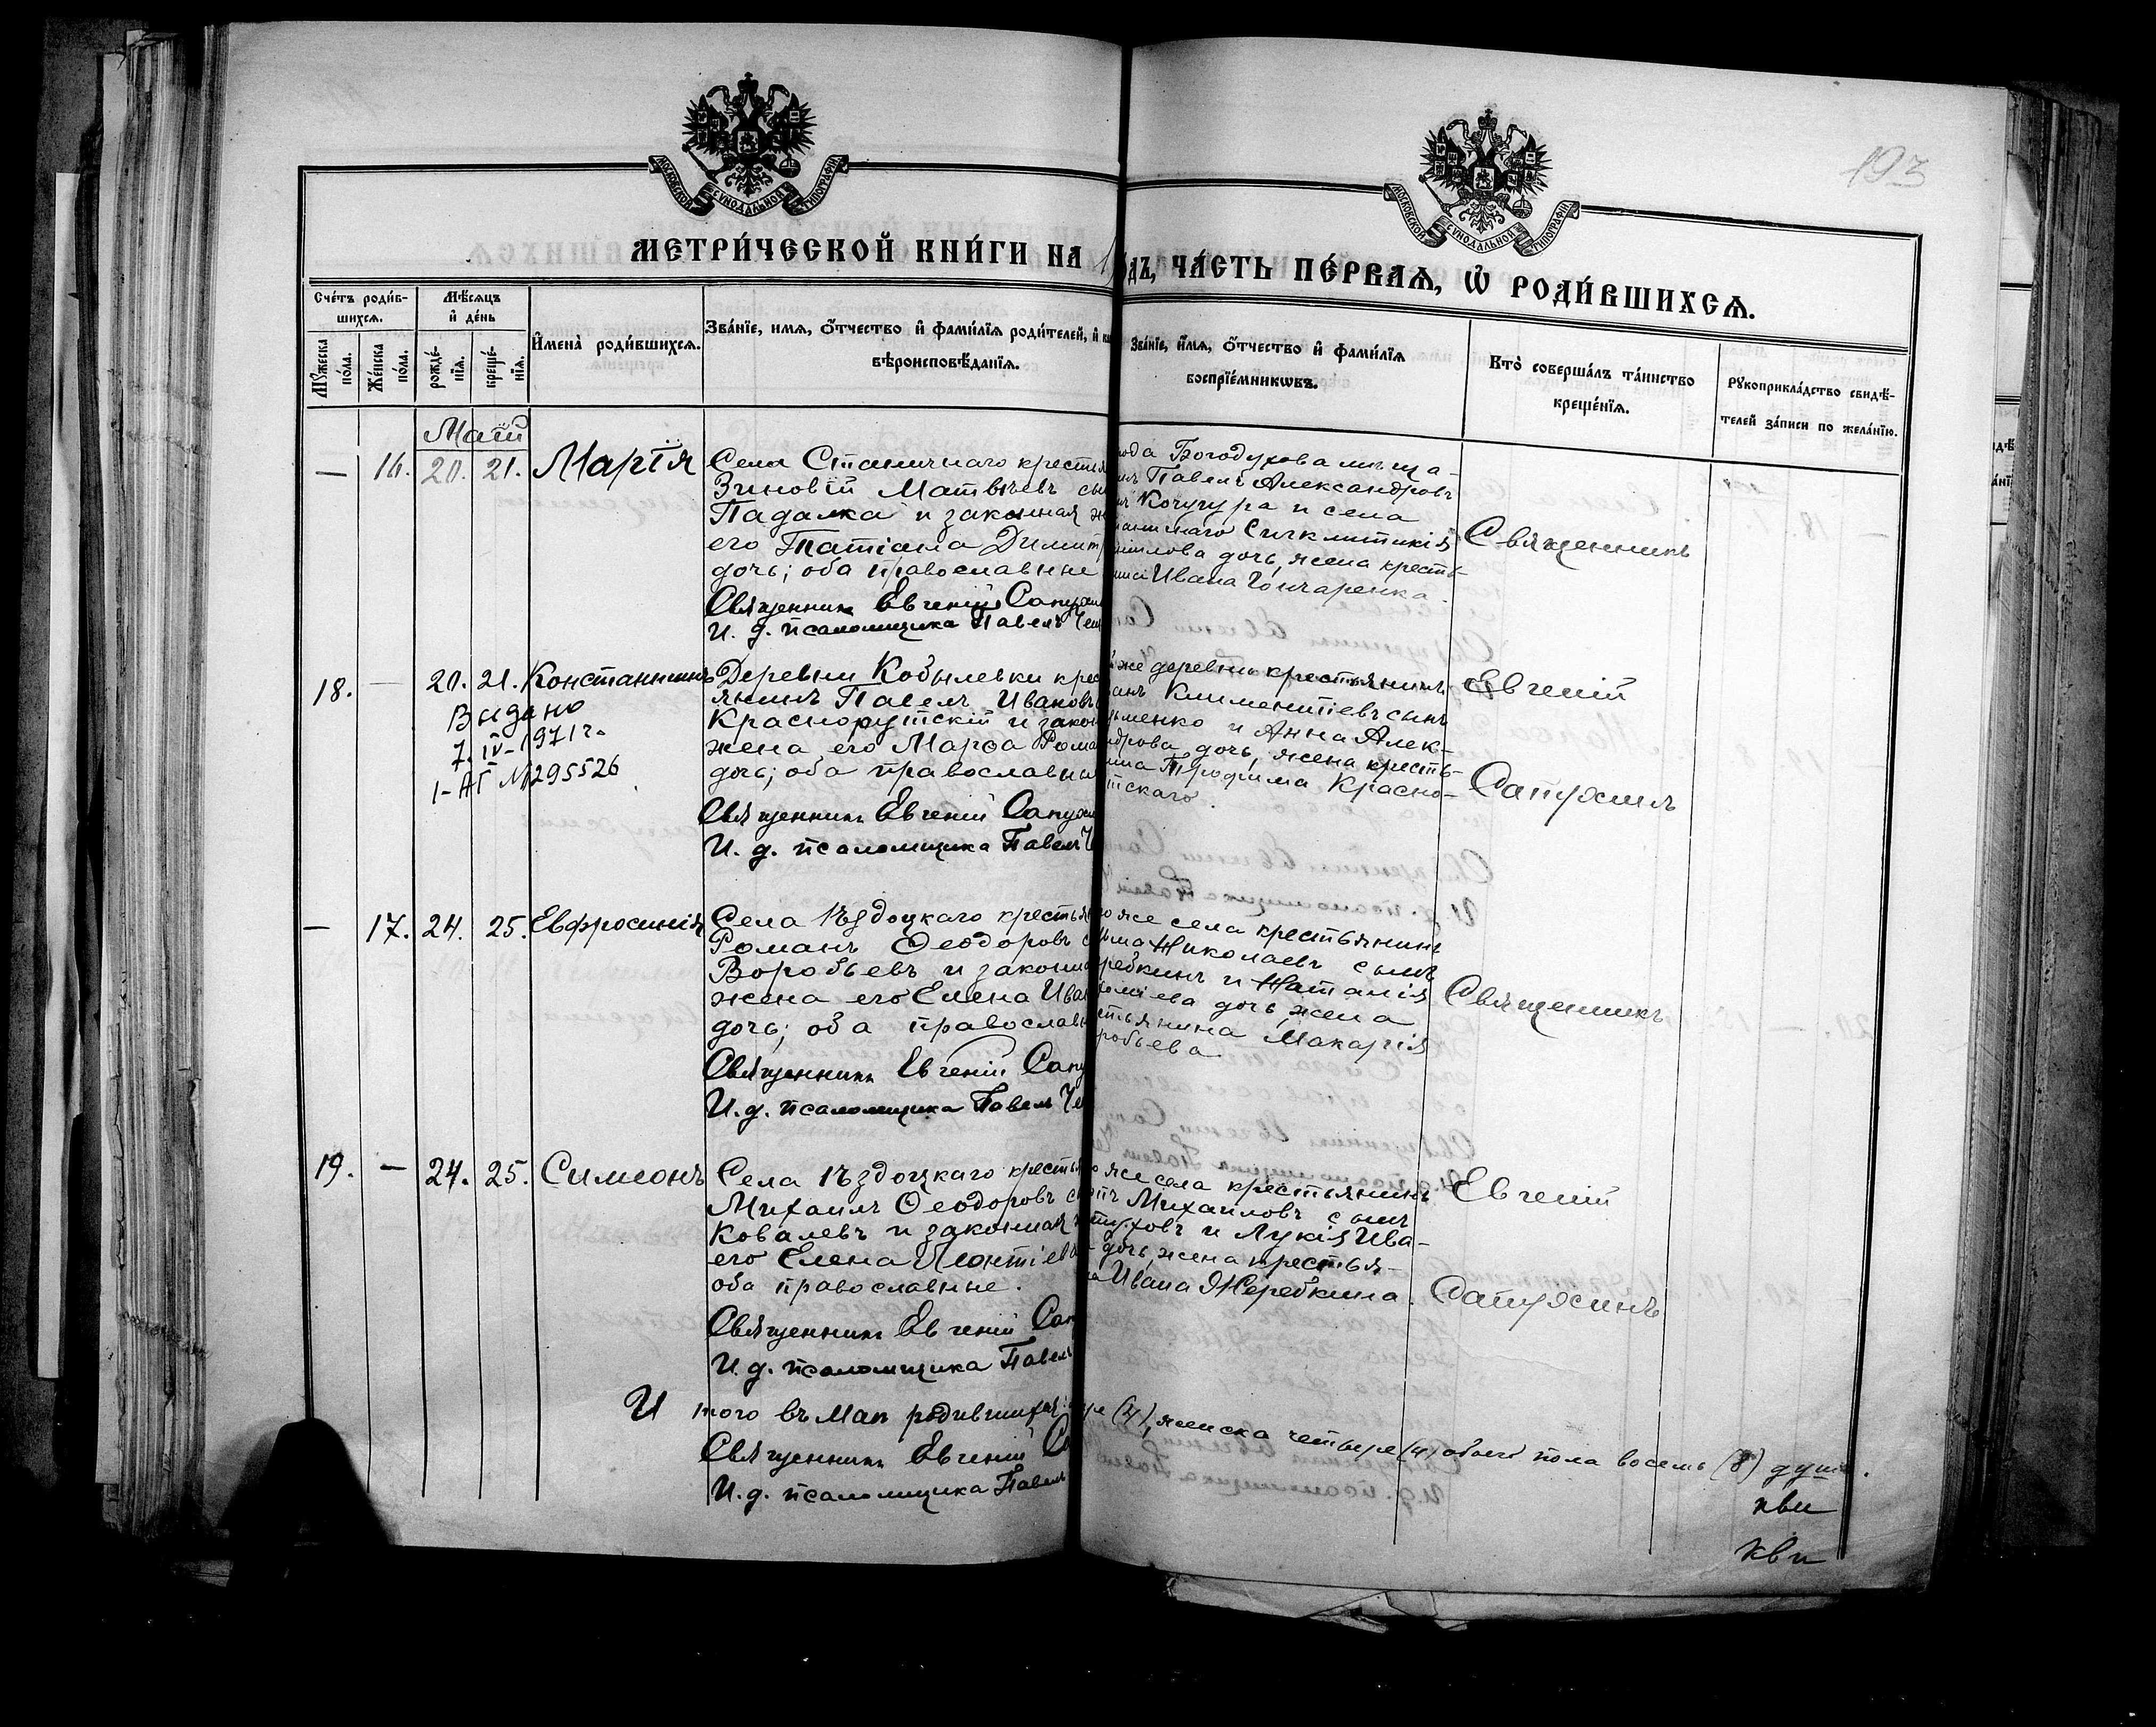 193
МОСКОВСКОЙ СУНОДАЛЬНОЙ ТИПОГРАФІИ
МОСКОВСКОЙ СУНОДАЛЬНОЙ ТИПОГРАФІИ
МЕТРИ́ЧЕСКОЙ КНИ́ГИ НА 1
дъ, ЧА́СТЬ ПЕ́РВАѦ, Ѡ РОДИ́ВШИХСѦ.
Сче́тъ роди́в-
шихсѧ.
Мꙋжеска по́ла.
Же́нска по́ла.
Мѣ́сѧцъ
и де́нь
рожде́-
нїѧ.
креще́-
нїѧ.
Имена̀ роди́вшихсѧ.
Зва́нїе, имѧ, о́тчество и фами́лїѧ роди́телей, и
вѣроисповѣ́данїѧ.
Зва́нїе, и́мѧ, о́тчество и фами́лїѧ
воспрїе́мникѡвъ.
Кто̀ соверша́лъ та́инство
креще́нїѧ.
Рꙋкоприкла́дство свидѣ́-
телей за́писи по жела́нїю.
Май
— 16. 20. 21. Марія
Села Станичнаго крестья
Зиновій Матвѣевъ сы
Падалка и законная ж
его Татіана Димит
дочь; оба православные
Священникъ Евгеній Сапухин
И. д. псаломщика Павелъ
ода Богодухова мѣща-
нъ Павелъ Александровъ
нъ Кочугура и села
аничнаго Синклитикія
илова дочь, жена кресть-
Ивана Гончаренка.
Священникъ
18. — 20. 21. Константинъ
Выдано
7. IV-1971 г.
I-АГ №295526
Деревни Кобылевки крес
янинъ Павелъ Ивановъ
Краснорутскій и закон
жена его Марѳа Рома
дочь; оба православны
Священникъ Евгеній Сапухи
И. д. псаломщика Павелъ
же деревни крестьянинъ
анъ Климентіевъ сынъ
ьменко и Анна Алек-
ндрова дочь, жена кресть-
ина Трофима Красно-
тскаго.
Евгеній
Сапухинъ
— 17. 24. 25. Евфросинія
Села Ѣздоцкаго крестья
Романъ Ѳеодоровъ с
Воробьевъ и законна
жена его Елена Иван
дочь; оба православн
Священникъ Евгеній Сапу
И. д. псаломщика Павелъ Че
о же села крестьянинъ
ьма Николаевъ сынъ
ребкинъ и Наталія
іева дочь, жена
стьянина Макарія
робьева
Священникъ
19. — 24. 25. Симеонъ
Села Ѣздоцкаго крестья
Михаилъ Ѳеодоровъ с
Ковалевъ и законная ж
его Елена Леонтіева
оба православные.
Священникъ Евгеній Сап
И. д. псаломщика Павелъ
о же села крестьянинъ
Михаиловъ сынъ
туховъ и Лукія Ива-
дочь, жена крестья-
на Ивана Жеребкина.
Евгеній
Сапухинъ
Итого въ Маѣ родившихся: ре (4), женска четыре (4) обоего пола восемь (8) душъ.
Священникъ Евгеній Са
И. д. псаломщика Павелъ